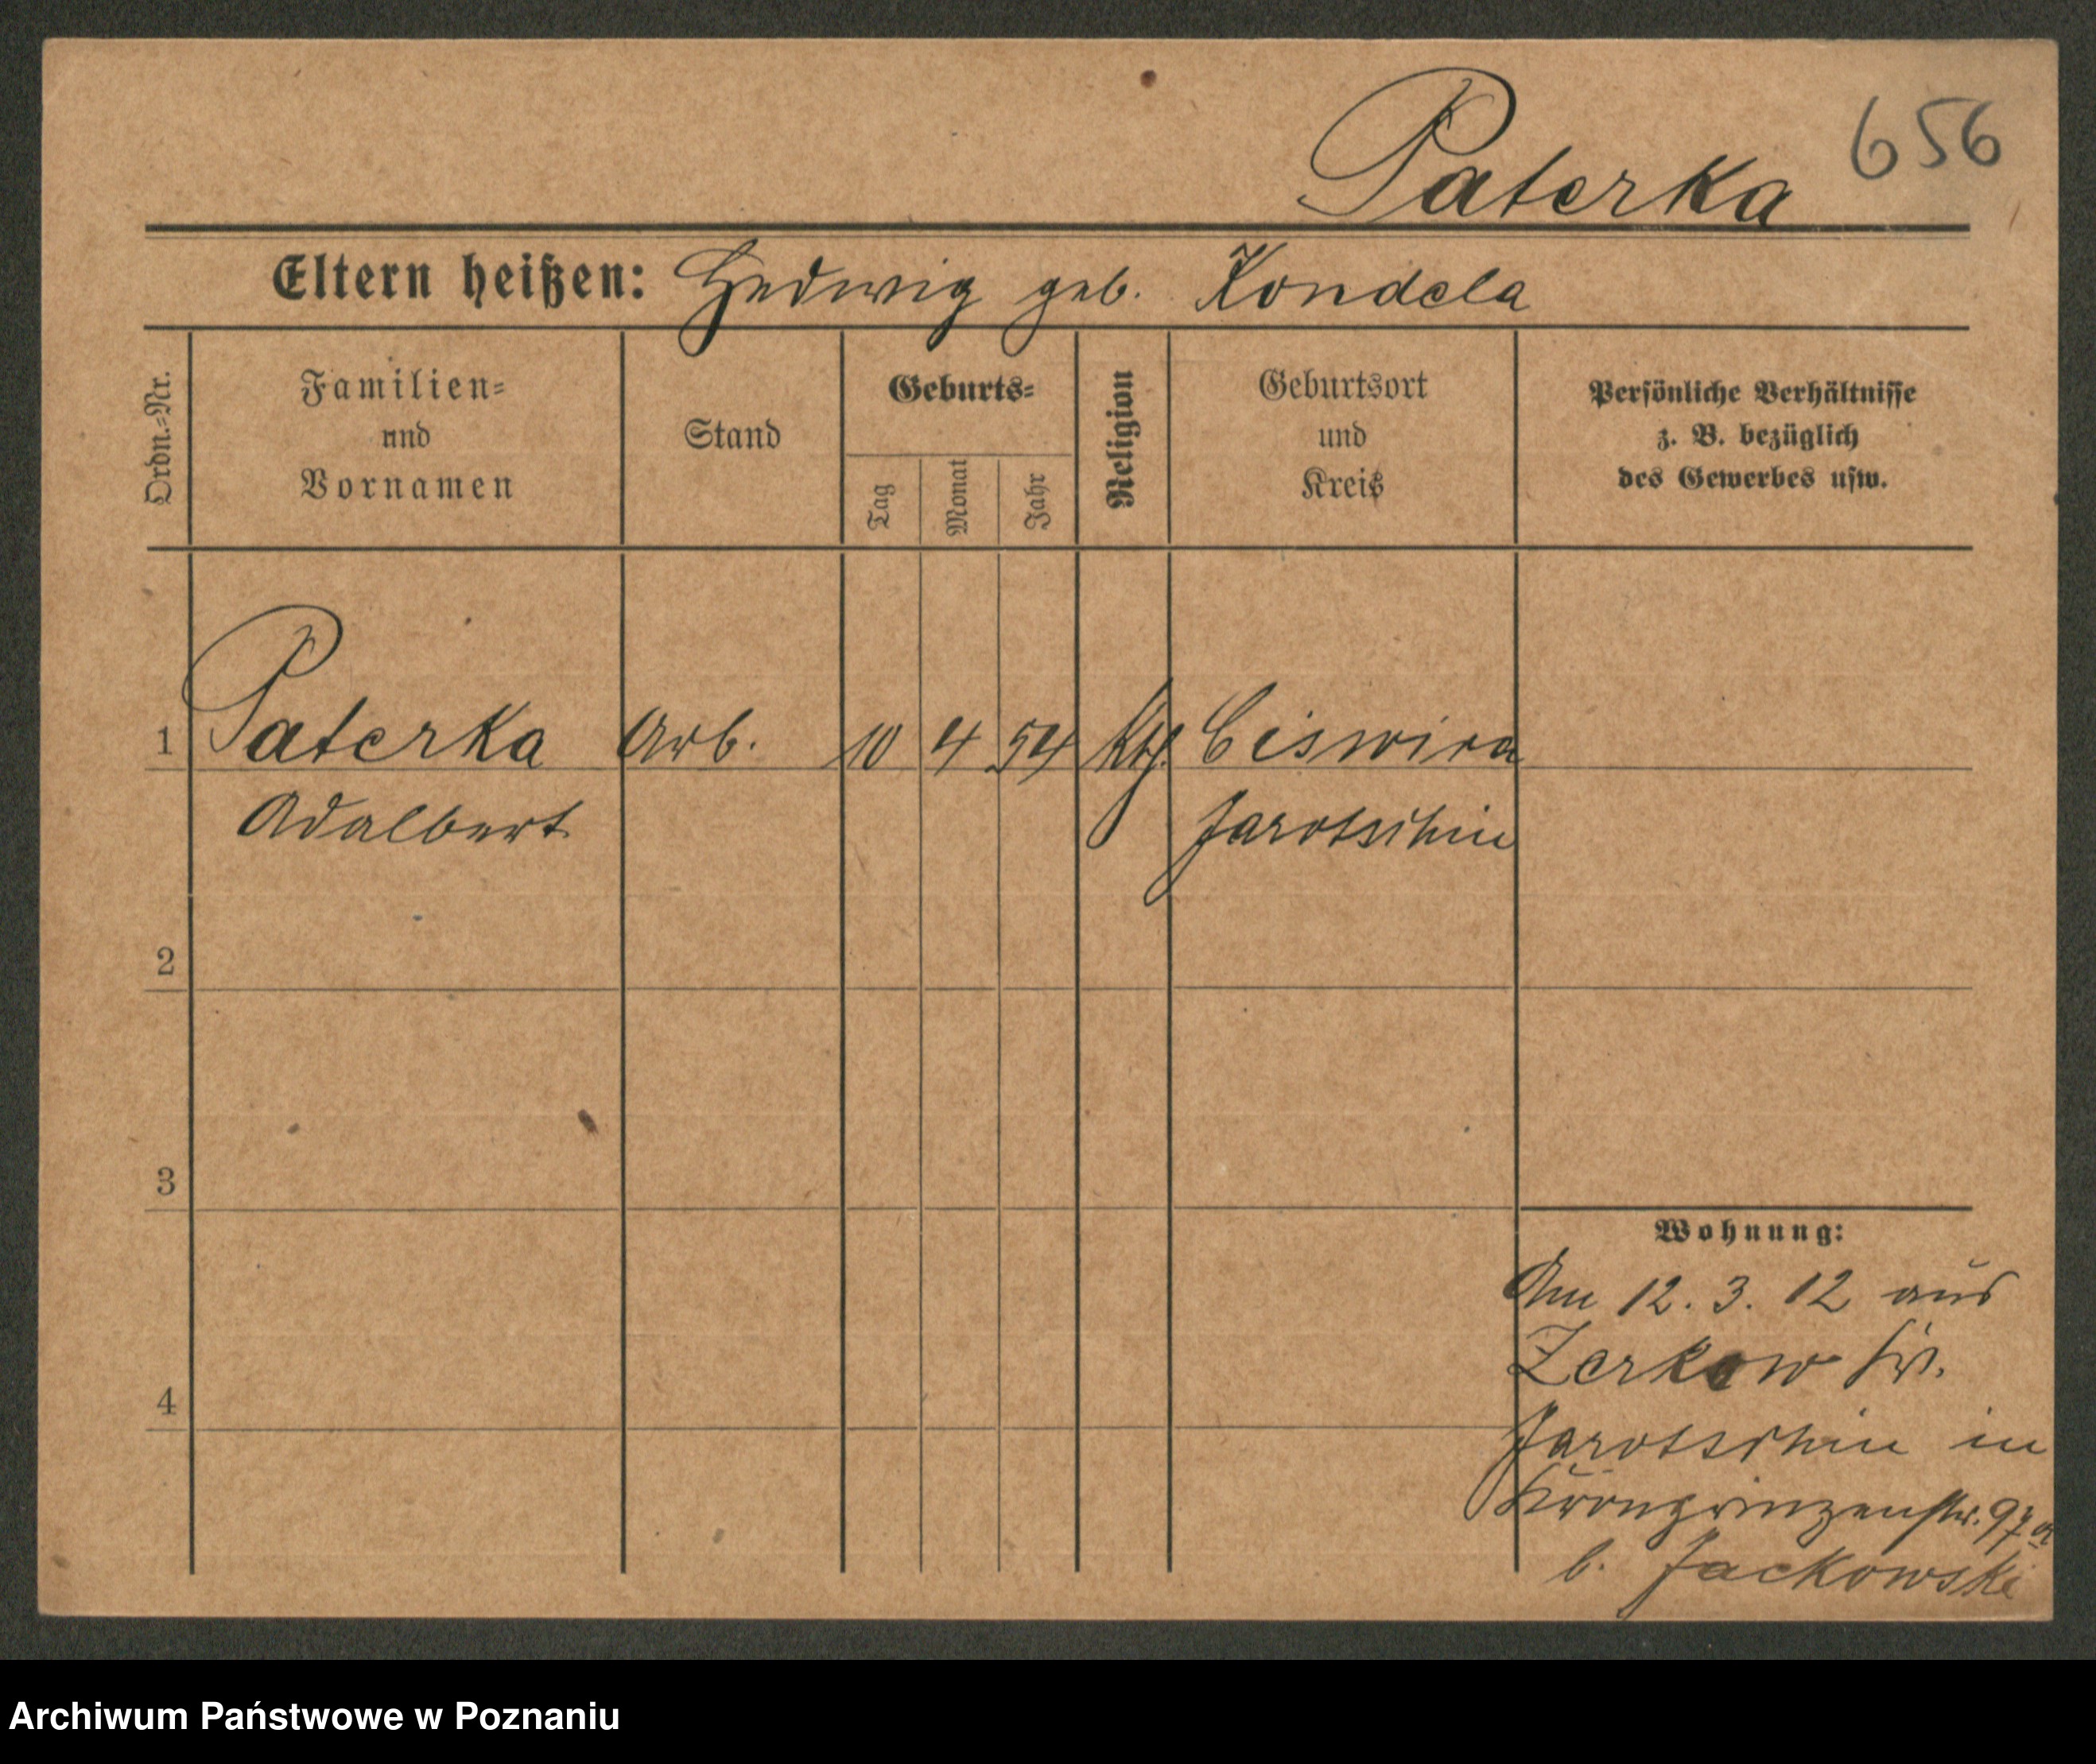 Paterka 656
Eltern heißen: Hedwig geb. Kondela
Ordn.=Nr.
Familien=
und
Vornamen
Stand
Geburts=
Tag
Monat
Jahr
Religion
Geburtsort
und
Kreis
Persönliche Verhältnisse
z. B. bezüglich
des Gewerbes usw.
1 Paterka Arb. 10 4 54 Kth. Ciswica
Adalbert Jarotschin
2
3
Wohnung:
Am 12. 3. 12 aus
Zerkow Kr.
4
Jarotschin in
Kronprinzenstr. 97a
b. Jackowski
Archiwum Państwowe w Poznaniu